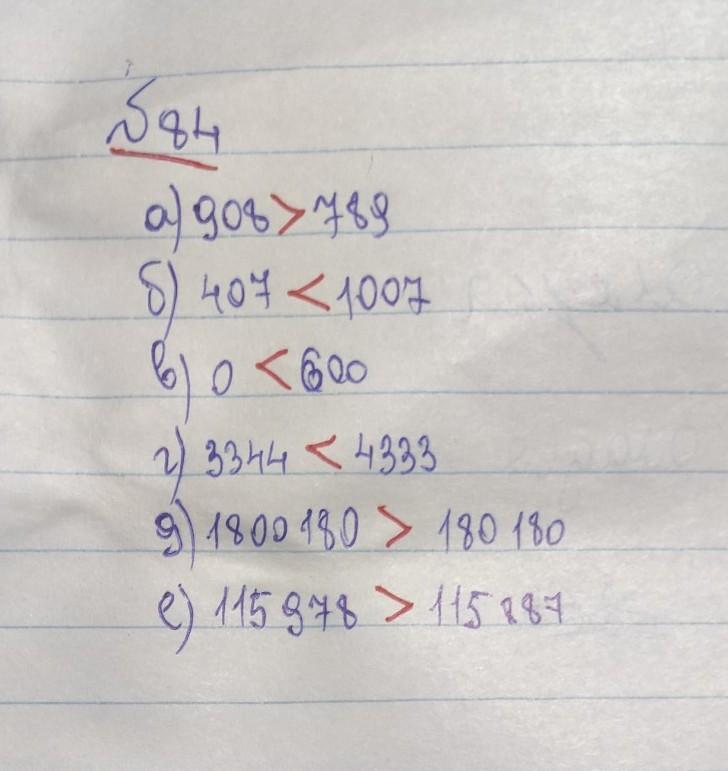 № 84
а) 908 > 789
б) 407 < 1007
в) 0 < 600
г) 3344 < 4333
д) 1800 180 > 180 180
е) 115 978 > 115 887